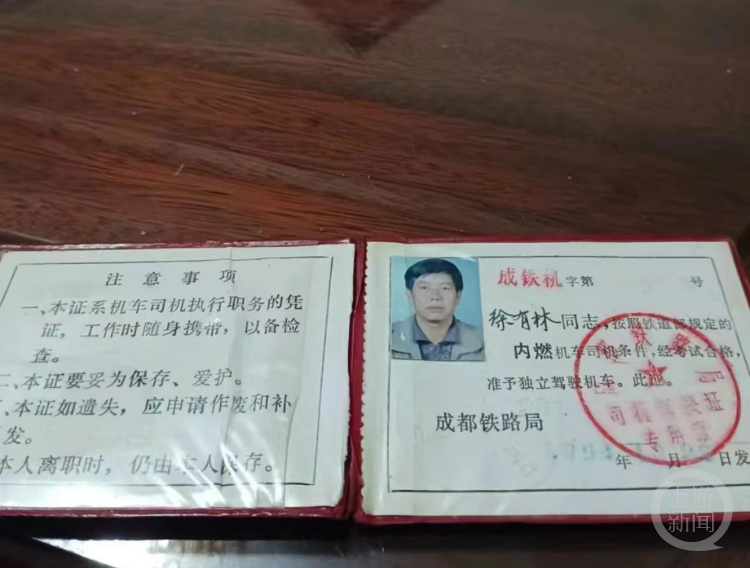 注意事项
一、本证系机车司机执行职务的凭
证，工作时随身携带，以备检
查。
二、本证要妥为保存、爱护。
、本证如遗失，应申请作废和补
发。
本人离职时，仍由本人保存。
成铁机字第 号
徐有林同志，按照铁道部规定的
内燃机车司机条件，经考试合格，
准予独立驾驶机车。此证
成都铁路局
年 月 日发
司机驾驶证
专用章
上游新闻